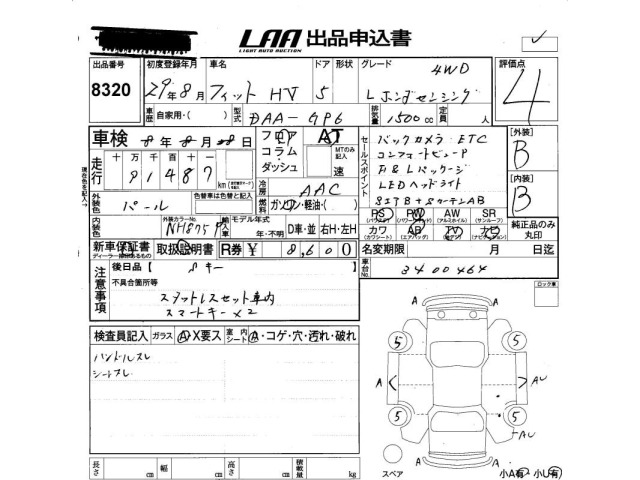 LAA 出品申込書
LIGHT AUTO AUCTION
出品番号 初度登録年月 車名 ドア 形状 グレード 4WD 評価点
8320 29年8月 フィット HV 5 Lホンダセンシング 4
車歴 自家用・( ) 型式 DAA-GP6 排気量 1500cc 定員 人
車検 8年8月 8日 フロア コラム・ダッシュ AT MTのみ記入 速
セールスポイント
バックカメラ ETC
コンフォートビューP
F&Lパッケージ
LEDヘッドライト
[外装] B
[内装] B
走行 十万千百十一
91487 km
現在色を記入
冷房 AAC
外装色 パール 色替車は色替と記入
燃料 ガソリン・軽油・( )
外装カラーNo. NH875P 輸入車記入 モデル年式 年・不明 D車・並 右H・左H
PS PW AW SR
(パワステ) (パワーウィンドウ) (アルミホイル) (サンルーフ)
カワ AB TV ナビ
(カワシート) (エアバッグ) (テレビ) (ナビゲーション)
純正品のみ丸印
新車保証書 取扱説明書 R券 ¥ 8,600
ディーラー捺印あるもの
名変期限 月 日迄
車台No. 3400464
注意事項
後日品 [ Rキー ]
不具合箇所等
スタットレスセット車内
スマートキー×2
ロック車
検査員記入 ガラス A・X要ス 室内シート A・コゲ・穴・汚れ・破れ
ハンドルスレ
シートスレ
A
5 5
A A AU
5 5
AU
A A
長さ cm 幅 cm 高さ cm 積載量 kg
スペア 小A有 小U有